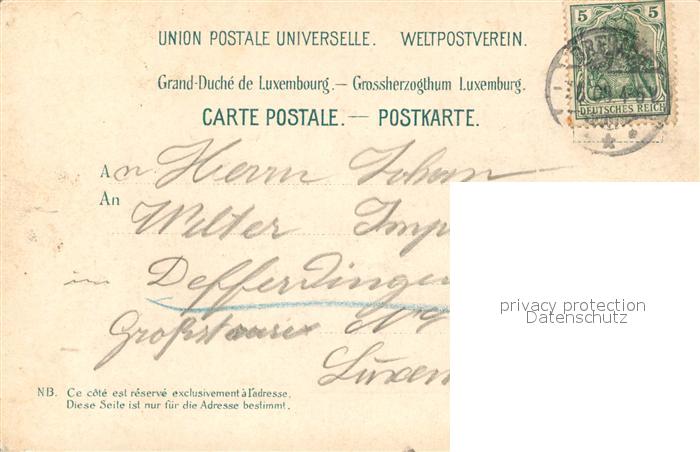 UNION POSTALE UNIVERSELLE. WELTPOSTVEREIN.
5 5
DEUTSCHES REICH
Grand-Duché de Luxembourg.— Grossherzogthum Luxemburg.
CARTE POSTALE.— POSTKARTE.
An Herrn Johann
An
Welter
in Defferdingen
Luxem
privacy protection
Datenschutz
NB. Ce côté est réservé exclusivement à l'adresse.
Diese Seite ist nur für die Adresse bestimmt.